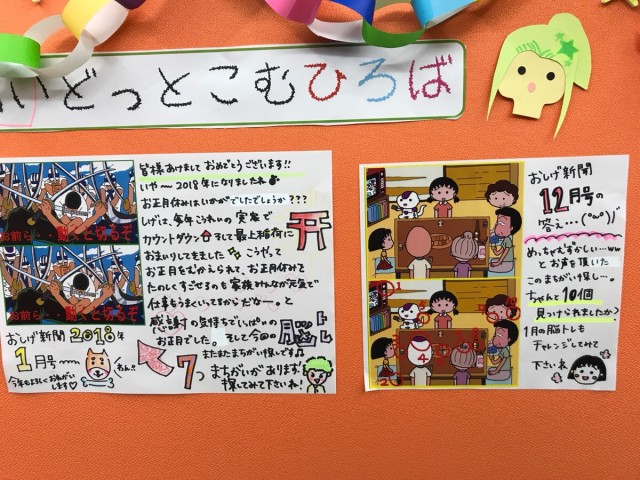 いどっとこむひろば
皆様あけまして おめでとうございます!!
いや〜 2018年になりましたね
お正月休みはいかがでしたでしょうか???
しげは、多年こうれいの 実家で
カウントダウン そして最上稲荷に
おまいりしてきました こうやって
お正月をむかえられて、お正月休みで
たのしくすごせるのも 家族みんなが元気で
仕事もうまくいってるからだなー。と
感謝の気持ちでいっぱいの
お正月でした。そして今回の脳トレ
またまたまちがい探しです♫
7つ まちがいがあります
探してみて下さいね!
お前ら・・動くと切るぞ
お前ら・・動くと切るぞ
おしげ新聞 2018年
1月号〜
わん!!
今年もよろしくおねがいします♡
おしげ新聞
12月号の
答え…(°ω°)ノ
めっちゃむずかしい…ww
とお声を頂いた
このまちがい探し…。
ちゃんと10個
見つけられましたか?
1月の脳トレも
チャレンジしてみて
下さいね